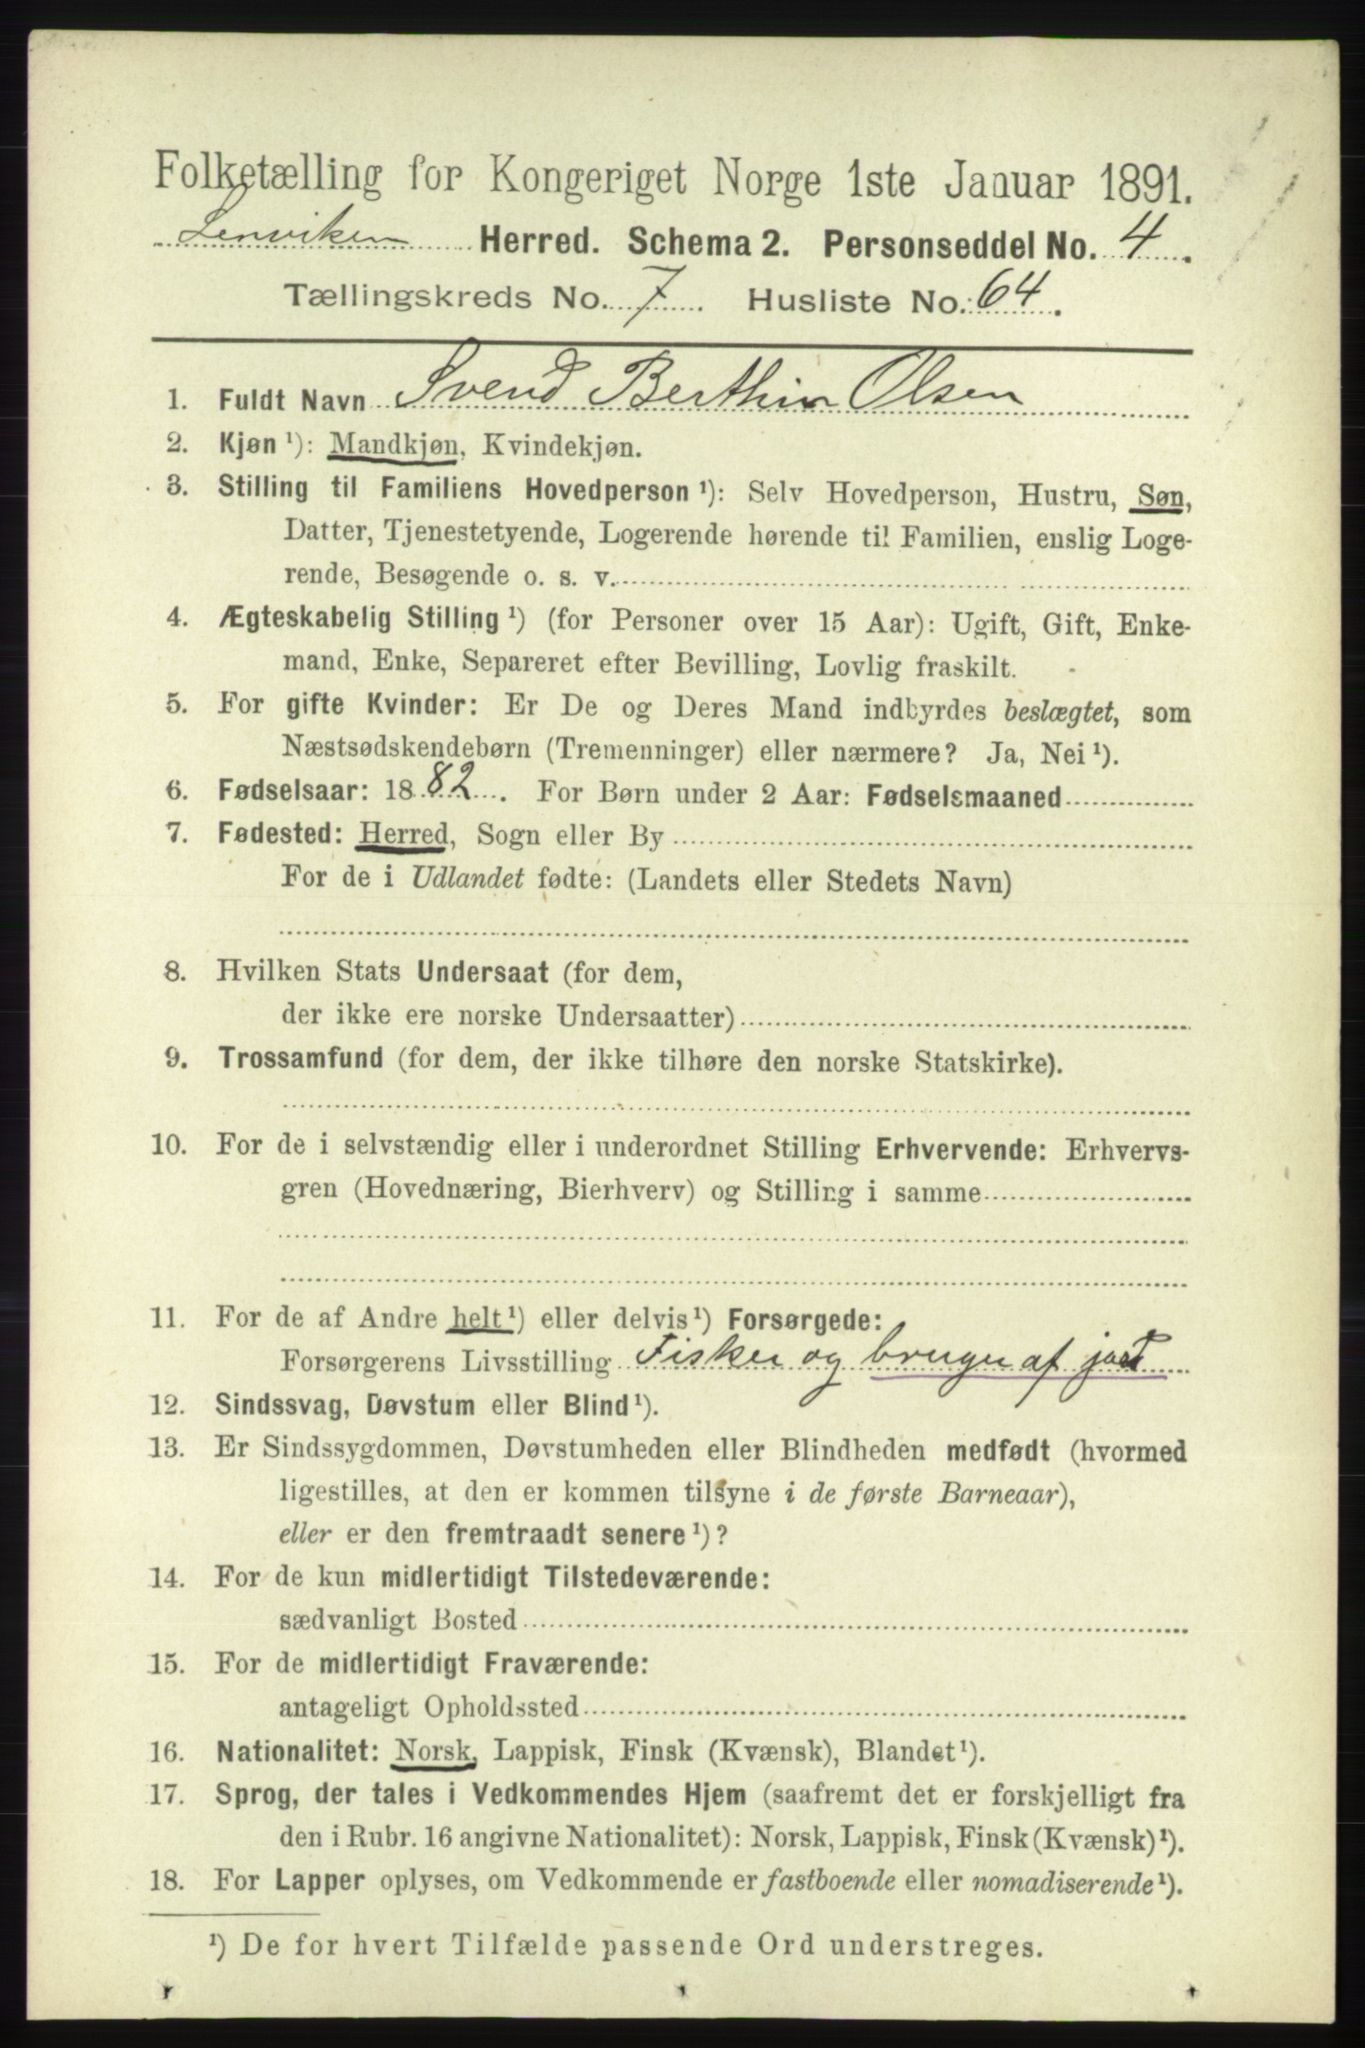 Folketælling for Kongeriget Norge 1ste Januar 1891.
Lenviken Herred. Schema 2. Personseddel No. 4.
Tællingskreds No. 7. Husliste No. 64.
1. Fuldt Navn Svend Berthin Olsen
2. Kjøn ¹): Mandkjøn, Kvindekjøn.
3. Stilling til Familiens Hovedperson ¹): Selv Hovedperson, Hustru, Søn,
Datter, Tjenestetyende, Logerende hørende til Familien, enslig Loge-
rende, Besøgende o. s. v.
4. Ægteskabelig Stilling ¹) (for Personer over 15 Aar): Ugift, Gift, Enke-
mand, Enke, Separeret efter Bevilling, Lovlig fraskilt.
5. For gifte Kvinder: Er De og Deres Mand indbyrdes beslægtet, som
Næstsødskendebørn (Tremenninger) eller nærmere? Ja, Nei ¹).
6. Fødselsaar: 1882. For Børn under 2 Aar: Fødselsmaaned
7. Fødested: Herred, Sogn eller By
For de i Udlandet fødte: (Landets eller Stedets Navn)
8. Hvilken Stats Undersaat (for dem,
der ikke ere norske Undersaatter)
9. Trossamfund (for dem, der ikke tilhøre den norske Statskirke).
10. For de i selvstændig eller i underordnet Stilling Erhvervende: Erhvervs-
gren (Hovednæring, Bierhverv) og Stilling i samme
11. For de af Andre helt ¹) eller delvis ¹) Forsørgede:
Forsørgerens Livsstilling Fisker og bruger af jord
12. Sindssvag, Døvstum eller Blind ¹).
13. Er Sindssygdommen, Døvstumheden eller Blindheden medfødt (hvormed
ligestilles, at den er kommen tilsyne i de første Barneaar),
eller er den fremtraadt senere ¹)?
14. For de kun midlertidigt Tilstedeværende:
sædvanligt Bosted
15. For de midlertidigt Fraværende:
antageligt Opholdssted
16. Nationalitet: Norsk, Lappisk, Finsk (Kvænsk), Blandet ¹).
17. Sprog, der tales i Vedkommendes Hjem (saafremt det er forskjelligt fra
den i Rubr. 16 angivne Nationalitet): Norsk, Lappisk, Finsk (Kvænsk) ¹).
18. For Lapper oplyses, om Vedkommende er fastboende eller nomadiserende ¹).
¹) De for hvert Tilfælde passende Ord understreges.